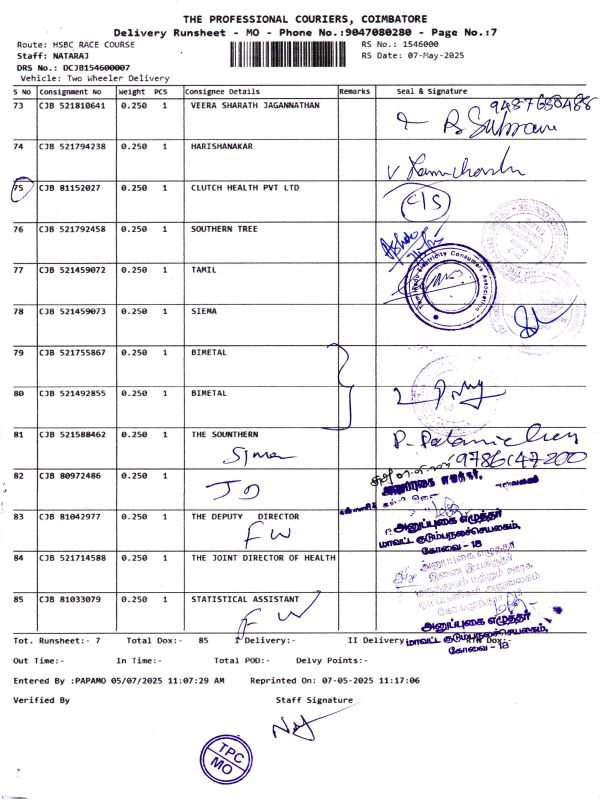 THE PROFESSIONAL COURIERS, COIMBATORE
Delivery Runsheet - MO - Phone No.:9047080280 - Page No.:7
Route: HSBC RACE COURSE
RS No.: 1546000
Staff: NATARAJ
RS Date: 07-May-2025
DRS No.: DCJB154600007
Vehicle: Two Wheeler Delivery
S No Consignment No Weight PCS Consignee Details Remarks Seal & Signature
73 CJB 521810641 0.250 1 VEERA SHARATH JAGANNATHAN 9487680488
74 CJB 521794238 0.250 1 HARISHANAKAR
75 CJB 81152027 0.250 1 CLUTCH HEALTH PVT LTD C/S
76 CJB 521792458 0.250 1 SOUTHERN TREE
77 CJB 521459072 0.250 1 TAMIL
Tamil Nadu Electricity Consumers Association
78 CJB 521459073 0.250 1 SIEMA
79 CJB 521755867 0.250 1 BIMETAL
80 CJB 521492855 0.250 1 BIMETAL
81 CJB 521588462 0.250 1 THE SOUNTHERN
Sima
9786147200
82 CJB 80972486 0.250 1
JD
83 CJB 81042977 0.250 1 THE DEPUTY DIRECTOR
FW
அனுப்புகை எழுத்தர்
மாவட்ட குடும்பநலச்செயலகம்,
கோவை - 18
84 CJB 521714588 0.250 1 THE JOINT DIRECTOR OF HEALTH
85 CJB 81033079 0.250 1 STATISTICAL ASSISTANT
FW
அனுப்புகை எழுத்தர்
மாவட்ட குடும்பநலச்செயலகம்,
கோவை - 18
Tot. Runsheet:- 7 Total Dox:- 85 I Delivery:- II Delivery RTN Dox:-
Out Time:- In Time:- Total POD:- Delvy Points:-
Entered By :PAPAMO 05/07/2025 11:07:29 AM Reprinted On: 07-05-2025 11:17:06
Verified By Staff Signature
TPC
MO